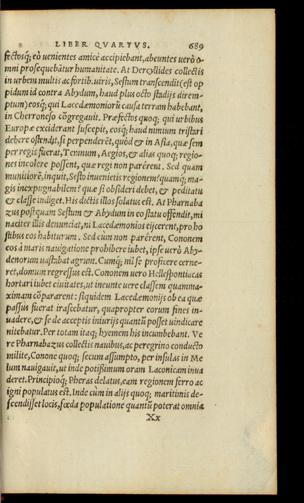 LIBER QVARTVS. 689
fectosq́; eò uenientes amicè accipiebant, abeuntes uerò o-
mni prosequebãtur humanitate. At Dercyllides collectis
in urbem multis ac fortib. uiris, Sestum transcendit (est op
pidum id contra Abydum, haud plus octo stadijs direm-
ptum) eosq́; qui Lacedæmoniorũ causa terram habebant,
in Cherroneso cõgregauit. Præfectos quoq; qui urbibus
Europæ exciderant suscepit, eosq́; haud nimium tristari
debere ostendit, si perpenderẽt, quòd & in Asia, quæ sem
per regis fuerat, Temnum, Aegios, & alias quoq; regio-
nes incolere possent, quæ regi non parérent. Sed quam
munitiorẽ, inquit, Sesto inuenietis regionem? quamq́; ma-
gis inexpugnabilem? quæ si obsideri debet, & peditatu
& classe indiget. His dictis illos solatus est. At Pharnaba
zus postquam Sestum & Abydum in eo statu offendit, mi
naciter illis denunciat, ni Lacedæmonios eijcerent, pro ho
stibus eos habiturum. Sed cùm non parérent, Cononem
eos à maris nauigatione prohibere iubet, ipse uerò Aby-
denorum uastabat agrum. Cumq́; nil se proficere cerne-
ret, domum regressus est. Cononem uero Hellespontiacas
hortari iubet ciuitates, ut ineunte uere classem quamma-
ximam cõpararent: siquidem Lacedæmonijs ob ea quæ
passus fuerat irascebatur, quapropter eorum fines in-
uadere, & se de acceptis iniurijs quantũ posset uindicare
nitebatur. Per totam itaq; hyemem his incumbebant. Ve
re Pharnabazus collectis nauibus, ac peregrino conducto
milite, Conone quoq; secum assumpto, per insulas in Me
lum nauigauit, ut inde potissimum oram Laconicam inua
deret. Principioq́; Pheras delatus, eam regionem ferro ac
igni populatus est. Inde cùm in alijs quoq; maritimis de-
scendisset locis, fœda populatione quantũ poterat omnia
Xx